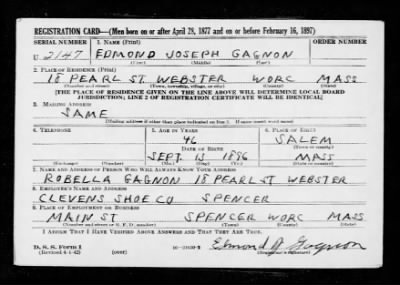 REGISTRATION CARD—(Men born on or after April 28, 1877 and on or before February 16, 1897)
SERIAL NUMBER 1. NAME (Print) ORDER NUMBER
U 2147 EDMOND JOSEPH GAGNON
(First) (Middle) (Last)
2. PLACE OF RESIDENCE (Print)
18 PEARL ST. WEBSTER WORC MASS
(Number and street) (Town, township, village, or city) (County) (State)
[THE PLACE OF RESIDENCE GIVEN ON THE LINE ABOVE WILL DETERMINE LOCAL BOARD
JURISDICTION; LINE 2 OF REGISTRATION CERTIFICATE WILL BE IDENTICAL]
3. MAILING ADDRESS
SAME
[Mailing address if other than place indicated on line 2. If same insert word same]
4. TELEPHONE 5. AGE IN YEARS 6. PLACE OF BIRTH
46 SALEM
DATE OF BIRTH (Town or county)
SEPT. 13 1896 MASS
(Exchange) (Number) (Mo.) (Day) (Yr.) (State or country)
7. NAME AND ADDRESS OF PERSON WHO WILL ALWAYS KNOW YOUR ADDRESS
ROBELLA GAGNON 18 PEARL ST WEBSTER
8. EMPLOYER'S NAME AND ADDRESS
CLEVENS SHOE CO SPENCER
9. PLACE OF EMPLOYMENT OR BUSINESS
MAIN ST SPENCER WORC MASS
(Number and street or R. F. D. number) (Town) (County) (State)
I AFFIRM THAT I HAVE VERIFIED ABOVE ANSWERS AND THAT THEY ARE TRUE.
D. S. S. Form 1
(Revised 4-1-42) (over) Edmond J Gagnon
(Registrant's signature)